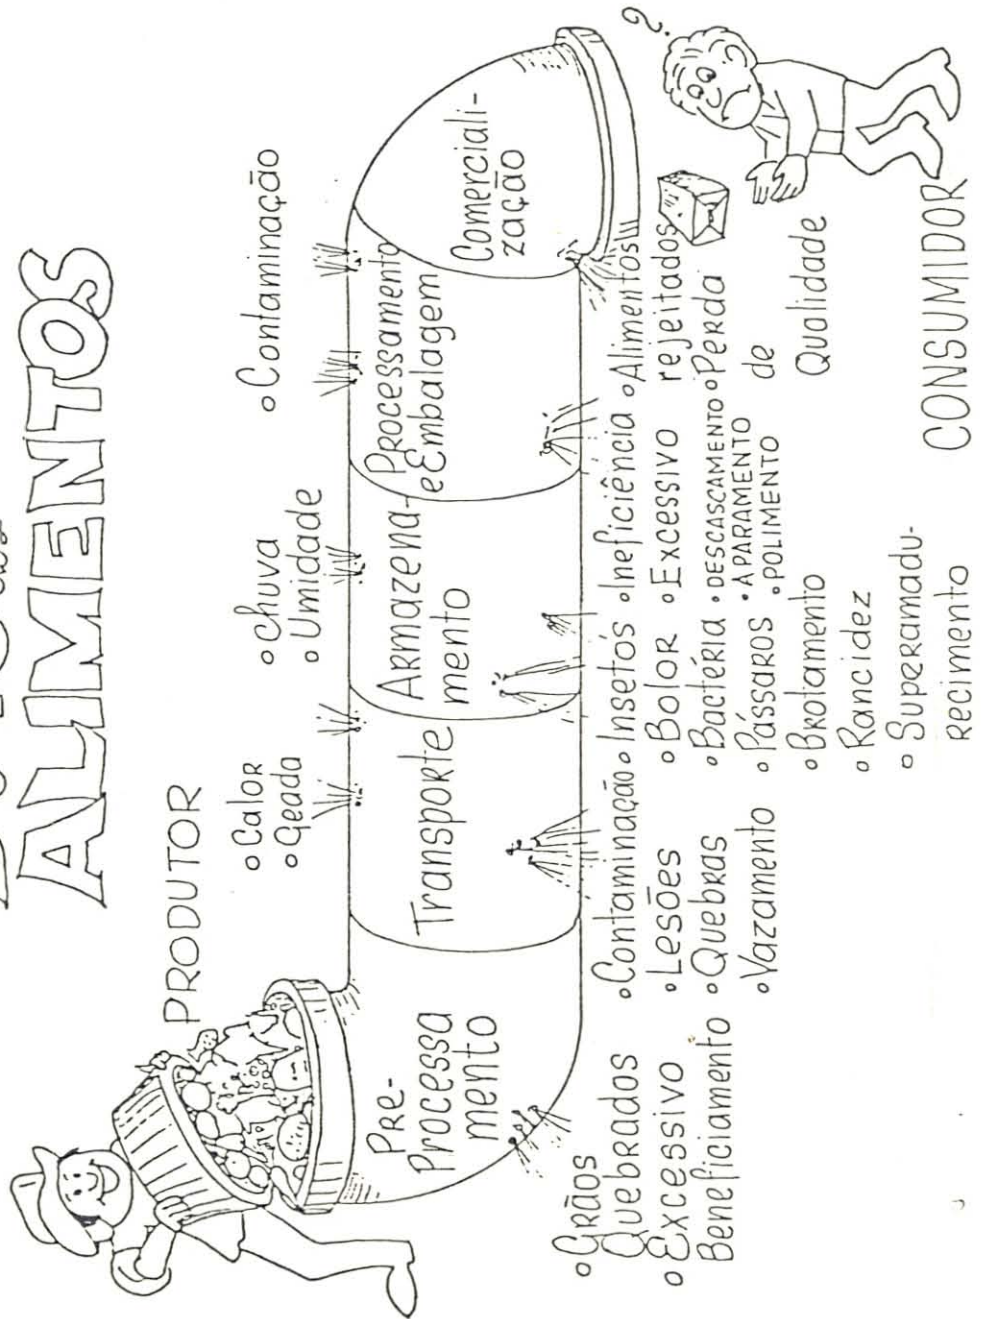 ALIMENTOS
PRODUTOR
Calor
Geada
Chuva
Umidade
Contaminação
PRE-
Processa
mento
Transporte
Armazena-
mento
Processamento
e Embalagem
Comerciali-
zação
?
Grãos
Quebrados
Excessivo
Beneficiamento
Contaminação
Lesões
Quebras
Vazamento
Insetos
Bolor
Bactéria
Pássaros
Brotamento
Rancidez
Superamadu-
recimento
Ineficiência
Excessivo
DESCASCAMENTO
APARAMENTO
POLIMENTO
Alimentos
rejeitados
Perda
de
Qualidade
CONSUMIDOR